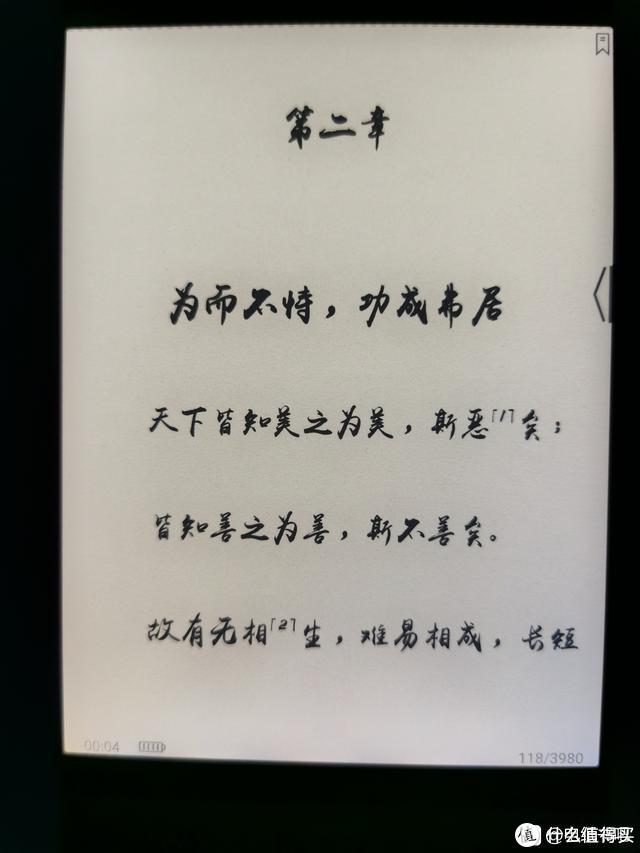 第二章
为而不恃，功成弗居
天下皆知美之为美，斯恶「1」矣；
皆知善之为善，斯不善矣。
故有无相「2」生，难易相成，长短
00:04
118/3980
值 什么值得买